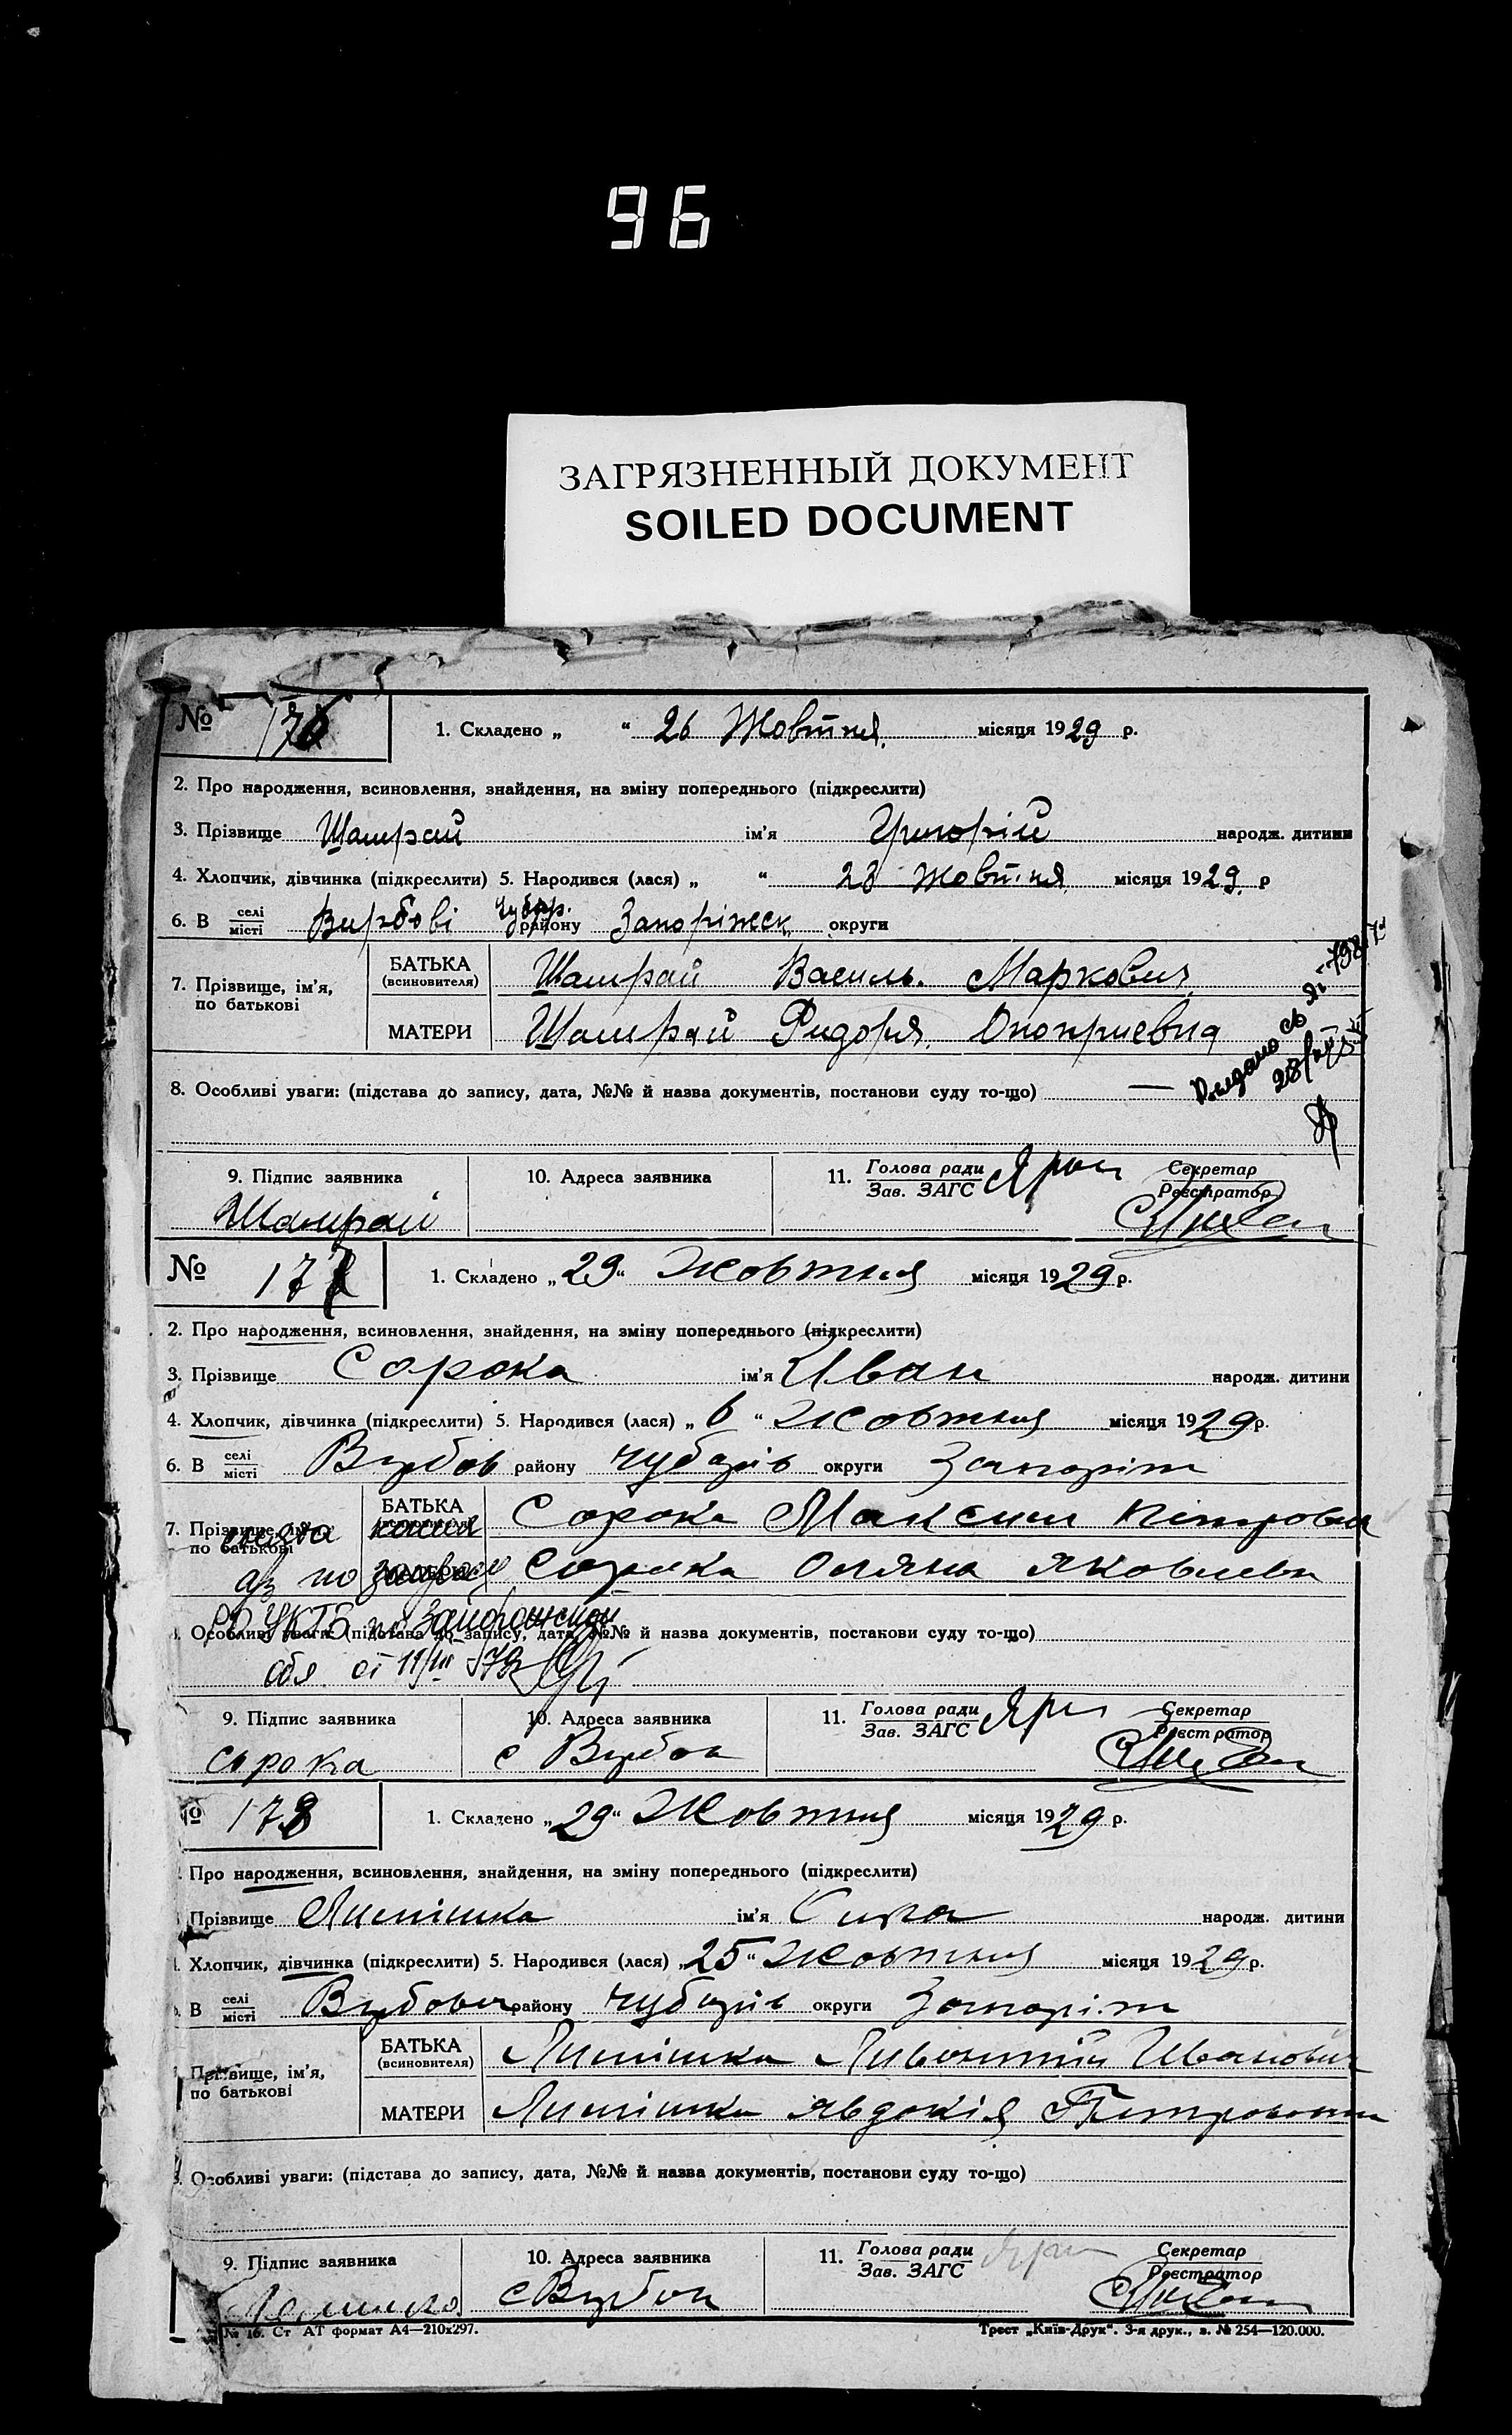 96
ЗАГРЯЗНЕННЫЙ ДОКУМЕНТ
SOILED DOCUMENT
№ 176 1. Складено „ “ 26 Жовтня місяця 1929 р.
2. Про народження, всиновлення, знайдення, на зміну попереднього (підкреслити)
3. Прізвище Шамрай ім'я Григорій народж. дитини
4. Хлопчик, дівчинка (підкреслити) 5. Народився (лася) „ “ Жовтня місяця 1929 р
6. В селі/місті Вирбові Чубар. району Запоріжск округи
7. Прізвище, ім'я, по батькові
БАТЬКА (всиновителя) Шамрай Василь Маркович
МАТЕРИ Шамрай Оноприевна
8. Особливі уваги: (підстава до запису, дата, №№ й назва документів, постанови суду то-що) —
9. Підпис заявника 10. Адреса заявника 11. Голова ради/Зав. ЗАГС Секретар/Реєстратор
Шамрай
№ 177 1. Складено „29“ Жовтня місяця 1929 р.
2. Про народження, всиновлення, знайдення, на зміну попереднього (підкреслити)
3. Прізвище Сорока ім'я Иван народж. дитини
4. Хлопчик, дівчинка (підкреслити) 5. Народився (лася) „6“ Жовтня місяця 1929 р.
6. В селі/місті Вербов району Чубарів округи Запоріж
7. Прізвище, ім'я, по батькові
БАТЬКА (всиновителя) Сорока Максим Пітрович
МАТЕРИ Сорока Оляна Яковлевн
снята копия
по запросу
УКГБ по Запорожской
Особливі уваги: (підстава до запису, дата, №№ й назва документів, постанови суду то-що)
обл. от 11/III
9. Підпис заявника 10. Адреса заявника 11. Голова ради/Зав. ЗАГС Секретар/Реєстратор
Сорока с Вербов
№ 178 1. Складено „29“ Жовтня місяця 1929 р.
Про народження, всиновлення, знайдення, на зміну попереднього (підкреслити)
Прізвище ім'я народж. дитини
Хлопчик, дівчинка (підкреслити) 5. Народився (лася) „25“ Жовтня місяця 1929 р.
В селі/місті району Чубарів округи Запоріж
Прізвище, ім'я, по батькові
БАТЬКА (всиновителя) Иванович
МАТЕРИ Явдокія Петрововна
Особливі уваги: (підстава до запису, дата, №№ й назва документів, постанови суду то-що)
9. Підпис заявника 10. Адреса заявника 11. Голова ради/Зав. ЗАГС Секретар/Реєстратор
с Вербов
№ 16. Ст АТ формат А4—210х297. Трест „Київ-Друк“. 3-я друк., з. № 254—120.000.